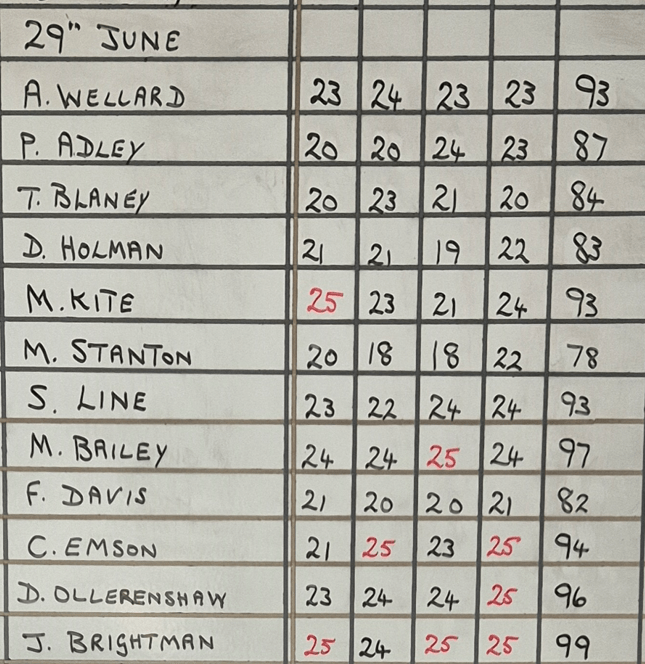 29TH JUNE
A. WELLARD 23 24 23 23 93
P. ADLEY 20 20 24 23 87
T. BLANEY 20 23 21 20 84
D. HOLMAN 21 21 19 22 83
M. KITE 25 23 21 24 93
M. STANTON 20 18 18 22 78
S. LINE 23 22 24 24 93
M. BAILEY 24 24 25 24 97
F. DAVIS 21 20 20 21 82
C. EMSON 21 25 23 25 94
D. OLLERENSHAW 23 24 24 25 96
J. BRIGHTMAN 25 24 25 25 99